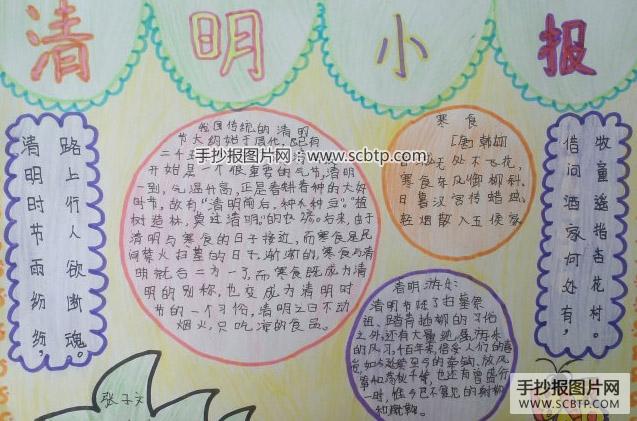 清明小报
清明时节雨纷纷,
路上行人欲断魂。
我国传统的清明
节大约始于周代,已有
二千五
开始是一个很重要的节气,清明
一到,气温升高,正是春耕春种的大好
时节,故有“清明前后,种瓜种豆。”“植
树造林,莫过清明。”的农谚。后来,由于
清明与寒食的日子接近,而寒食是民
间禁火扫墓的日子,渐渐的,寒食与清
明就合二为一了,而寒食既成为清
明的别称,也变成为清明时
节的一个习俗,清明之日不动
烟火,只吃凉的食品。
寒食
[唐]韩翃
无处不飞花,
寒食东风御柳斜。
日暮汉宫传蜡烛,
轻烟散入五侯家
清明
清明节除了扫墓祭
祖、踏青插柳的习俗
之外,还有大量
的风习。千百年来,倍受人们的喜
放风
筝和荡秋千等,也还有曾盛行
一时,
借问酒家何处有,
牧童遥指杏花村。
张子文
手抄报图片网
www.scbtp.com
手抄报图片网
WWW.SCBTP.COM